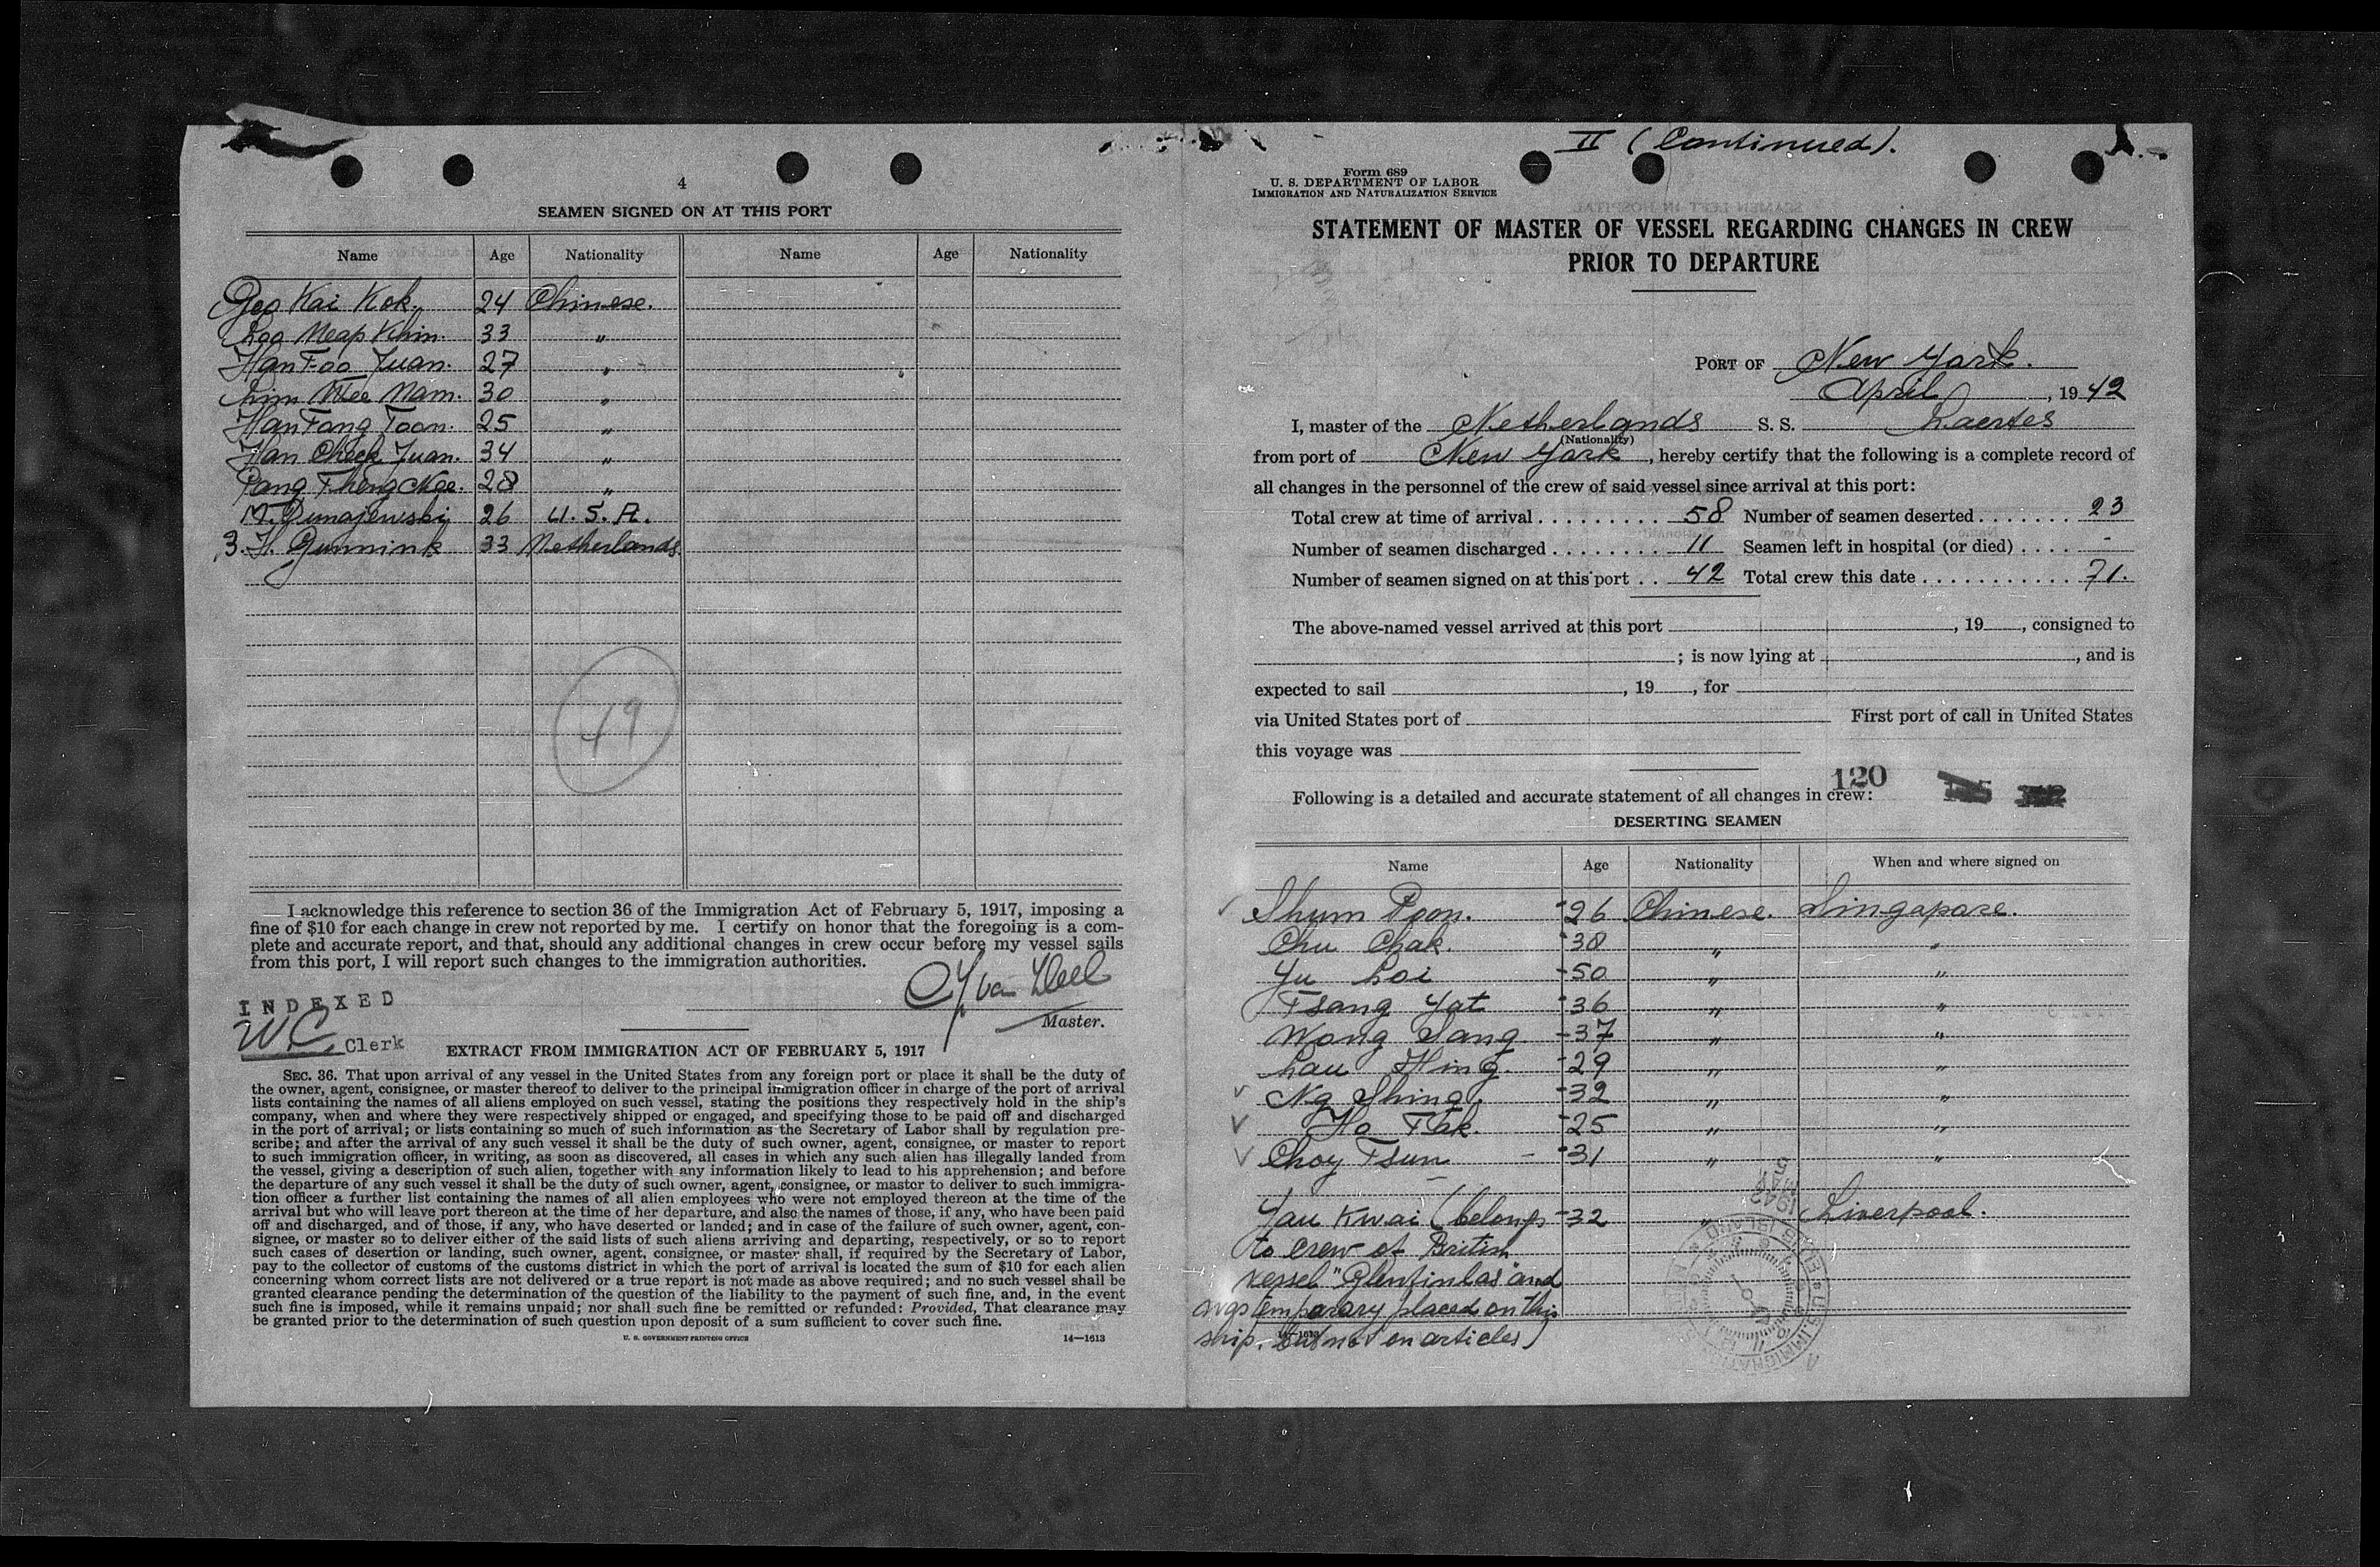 4
SEAMEN SIGNED ON AT THIS PORT
Name Age Nationality Name Age Nationality
Geo Kai Kok. 24 Chinese.
Loo Meap Khin. 33 "
Han Foo Juan. 27 "
Lim Wee Nam. 30 "
Han Fong Toon. 25 "
Han Cheek Juan. 34 "
Pang Theng Nee. 28 "
M. Dunajewski 26 U.S.A.
3. H. Gunnink 33 Netherlands
49
I acknowledge this reference to section 36 of the Immigration Act of February 5, 1917, imposing a
fine of $10 for each change in crew not reported by me. I certify on honor that the foregoing is a com-
plete and accurate report, and that, should any additional changes in crew occur before my vessel sails
from this port, I will report such changes to the immigration authorities.
Master.
INDEXED
WC Clerk
EXTRACT FROM IMMIGRATION ACT OF FEBRUARY 5, 1917
SEC. 36. That upon arrival of any vessel in the United States from any foreign port or place it shall be the duty of
the owner, agent, consignee, or master thereof to deliver to the principal immigration officer in charge of the port of arrival
lists containing the names of all aliens employed on such vessel, stating the positions they respectively hold in the ship's
company, when and where they were respectively shipped or engaged, and specifying those to be paid off and discharged
in the port of arrival; or lists containing so much of such information as the Secretary of Labor shall by regulation pre-
scribe; and after the arrival of any such vessel it shall be the duty of such owner, agent, consignee, or master to report
to such immigration officer, in writing, as soon as discovered, all cases in which any such alien has illegally landed from
the vessel, giving a description of such alien, together with any information likely to lead to his apprehension; and before
the departure of any such vessel it shall be the duty of such owner, agent, consignee, or master to deliver to such immigra-
tion officer a further list containing the names of all alien employees who were not employed thereon at the time of the
arrival but who will leave port thereon at the time of her departure, and also the names of those, if any, who have been paid
off and discharged, and of those, if any, who have deserted or landed; and in case of the failure of such owner, agent, con-
signee, or master so to deliver either of the said lists of such aliens arriving and departing, respectively, or so to report
such cases of desertion or landing, such owner, agent, consignee, or master shall, if required by the Secretary of Labor,
pay to the collector of customs of the customs district in which the port of arrival is located the sum of $10 for each alien
concerning whom correct lists are not delivered or a true report is not made as above required; and no such vessel shall be
granted clearance pending the determination of the question of the liability to the payment of such fine, and, in the event
such fine is imposed, while it remains unpaid; nor shall such fine be remitted or refunded: Provided, That clearance may
be granted prior to the determination of such question upon deposit of a sum sufficient to cover such fine.
U. S. GOVERNMENT PRINTING OFFICE 14—1613
II (Continued).
Form 689
U. S. DEPARTMENT OF LABOR
IMMIGRATION AND NATURALIZATION SERVICE
STATEMENT OF MASTER OF VESSEL REGARDING CHANGES IN CREW
PRIOR TO DEPARTURE
PORT OF New York.
April, 1942
I, master of the Netherlands S. S. Laertes
(Nationality)
from port of New York, hereby certify that the following is a complete record of
all changes in the personnel of the crew of said vessel since arrival at this port:
Total crew at time of arrival . . . . . . . . . 58 Number of seamen deserted . . . . . . . 23
Number of seamen discharged . . . . . . . . 11 Seamen left in hospital (or died) . . . . -
Number of seamen signed on at this port . . 42 Total crew this date . . . . . . . . . . . 71.
The above-named vessel arrived at this port , 19 , consigned to
; is now lying at , and is
expected to sail , 19 , for
via United States port of First port of call in United States
this voyage was
120
Following is a detailed and accurate statement of all changes in crew:
DESERTING SEAMEN
Name Age Nationality When and where signed on
✓ Shum Poon. -26 Chinese. Singapore.
Chu Chak. -38 " "
Yu Loi -50 " "
Tsang Yat -36 " "
Wong Sang -37 " "
Lau Hing. -29 " "
✓ Ng Shing. -32 " "
✓ Ho Tak. -25 " "
✓ Choy Tsun - -31 " "
Yau Kwai (belongs -32 " Liverpool.
to crew of British
vessel "Glenfinlas" and
was temporary placed on this
ship. but not on articles)
14—1613